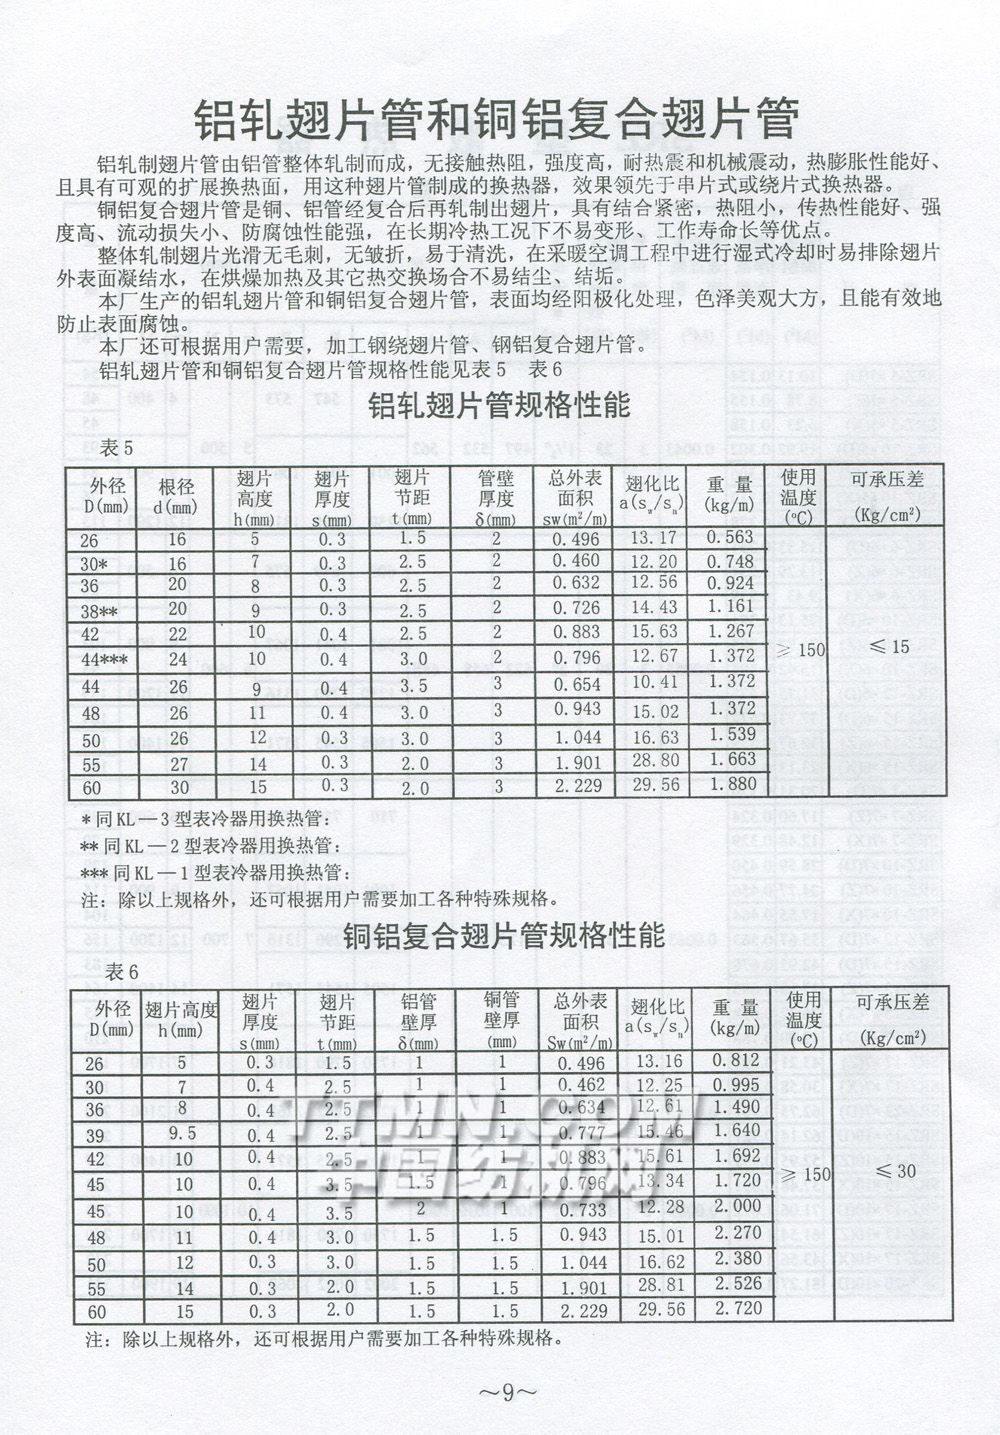 铝轧翅片管和铜铝复合翅片管
铝轧制翅片管由铝管整体轧制而成，无接触热阻，强度高，耐热震和机械震动，热膨胀性能好、
且具有可观的扩展换热面，用这种翅片管制成的换热器，效果领先于串片式或绕片式换热器。
铜铝复合翅片管是铜、铝管经复合后再轧制出翅片，具有结合紧密，热阻小，传热性能好、强
度高、流动损失小、防腐蚀性能强，在长期冷热工况下不易变形、工作寿命长等优点。
整体轧制翅片光滑无毛刺，无皱折，易于清洗，在采暖空调工程中进行湿式冷却时易排除翅片
外表面凝结水，在烘燥加热及其它热交换场合不易结尘、结垢。
本厂生产的铝轧翅片管和铜铝复合翅片管，表面均经阳极化处理，色泽美观大方，且能有效地
防止表面腐蚀。
本厂还可根据用户需要，加工钢绕翅片管、钢铝复合翅片管。
铝轧翅片管和铜铝复合翅片管规格性能见表5 表6
铝轧翅片管规格性能
表5
外径 D(mm) 根径 d(mm) 翅片高度 h(mm) 翅片厚度 s(mm) 翅片节距 t(mm) 管壁厚度 δ(mm) 总外表面积 sw(m²/m) 翅化比 a(sw/sn) 重量 (kg/m) 使用温度 (℃) 可承压差 (Kg/cm²)
26 16 5 0.3 1.5 2 0.496 13.17 0.563
30* 16 7 0.3 2.5 2 0.460 12.20 0.748
36 20 8 0.3 2.5 2 0.632 12.56 0.924
38** 20 9 0.3 2.5 2 0.726 14.43 1.161
42 22 10 0.4 2.5 2 0.883 15.63 1.267
44*** 24 10 0.4 3.0 2 0.796 12.67 1.372 ≥150 ≤15
44 26 9 0.4 3.5 3 0.654 10.41 1.372
48 26 11 0.4 3.0 3 0.943 15.02 1.372
50 26 12 0.3 3.0 3 1.044 16.63 1.539
55 27 14 0.3 2.0 3 1.901 28.80 1.663
60 30 15 0.3 2.0 3 2.229 29.56 1.880
*同KL—3型表冷器用换热管：
**同KL—2型表冷器用换热管：
***同KL—1型表冷器用换热管：
注：除以上规格外，还可根据用户需要加工各种特殊规格。
铜铝复合翅片管规格性能
表6
外径 D(mm) 翅片高度 h(mm) 翅片厚度 s(mm) 翅片节距 t(mm) 铝管壁厚 δ(mm) 铜管壁厚 (mm) 总外表面积 Sw(m²/m) 翅化比 a(sw/sn) 重量 (kg/m) 使用温度 (℃) 可承压差 (Kg/cm²)
26 5 0.3 1.5 1 1 0.496 13.16 0.812
30 7 0.4 2.5 1 1 0.462 12.25 0.995
36 8 0.4 2.5 1 1 0.634 12.61 1.490
39 9.5 0.4 2.5 1 1 0.777 15.46 1.640
42 10 0.4 2.5 1 1 0.883 15.61 1.692
45 10 0.4 3.5 1.5 0.796 13.34 1.720 ≥150 ≤30
45 10 0.4 3.5 2 1 0.733 12.28 2.000
48 11 0.4 3.0 1.5 1.5 0.943 15.01 2.270
50 12 0.3 3.0 1.5 1.5 1.044 16.62 2.380
55 14 0.3 2.0 1.5 1.5 1.901 28.81 2.526
60 15 0.3 2.0 1.5 1.5 2.229 29.56 2.720
TTMN.COM
中国纺机网
注：除以上规格外，还可根据用户需要加工各种特殊规格。
～9～